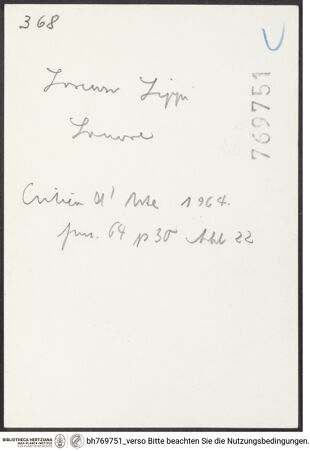 368
769751
Lorenzo Lippi
Louvre
Critica d'Arte 1964.
fasc. 64 p 30 Abb 22
BIBLIOTHECA HERTZIANA
MAX-PLANCK-INSTITUT
FÜR KUNSTGESCHICHTE
bh769751_verso Bitte beachten Sie die Nutzungsbedingungen.